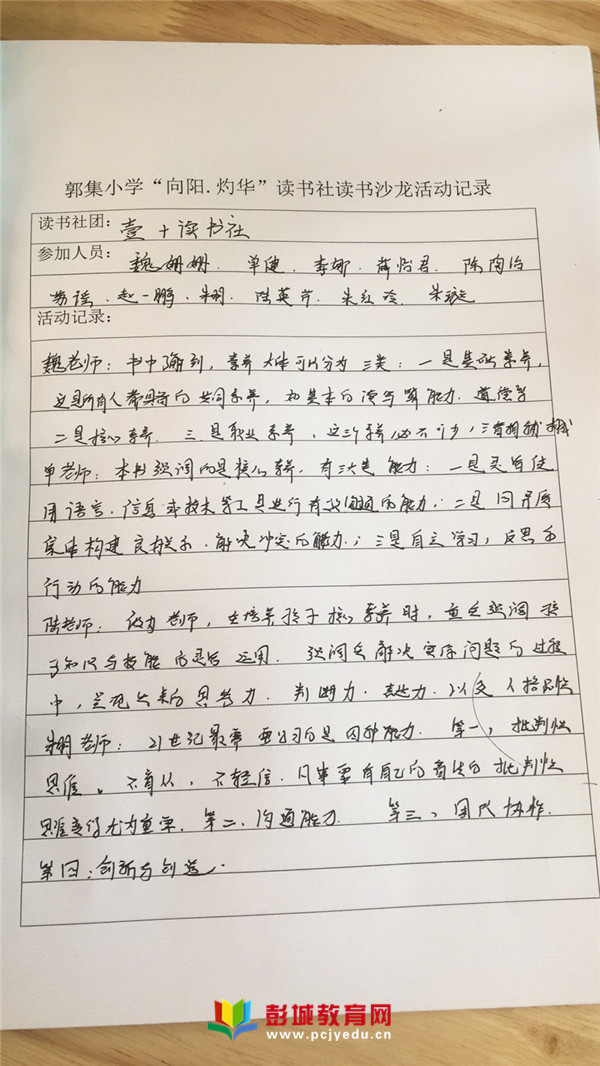 郭集小学“向阳.灼华”读书社读书沙龙活动记录
读书社团：壹+读书社
参加人员：魏姗姗、单健、李娜、薛怡君、陈陶冶
赵一鹏、朱玥、陆英芹、朱红玲、朱璇
活动记录：
魏老师：书中确到，素养大体可以分为三类：一是基础素养，
这是所有人都具备的共同素养，如基本的读写算能力、道德等
二是核心素养 三是职业素养，这三个素养必不可少，三者相辅相成
单老师：本书强调的是核心素养，有三大类能力：一是灵活使
用语言、信息本技术等工具进行有效沟通的能力；二是同异质
集体构建良好关系、解决冲突的能力；三是自主学习，反思和
行动的能力
陆老师：做为老师，在培养孩子核心素养时，重在强调孩
子知识与技能的灵活运用 强调在解决实际问题的过程
中，呈现出来的思考力、判断力、表达力、以及人格品性
朱玥老师：21世纪最需要学习的是四种能力 第一，批判性
思维。不盲从，不轻信 凡事要有自己的看法的批判性
思维变得尤为重要 第二，沟通能力 第三、团队协作
第四：创新与创造.
彭城教育网
www.pcjyedu.cn